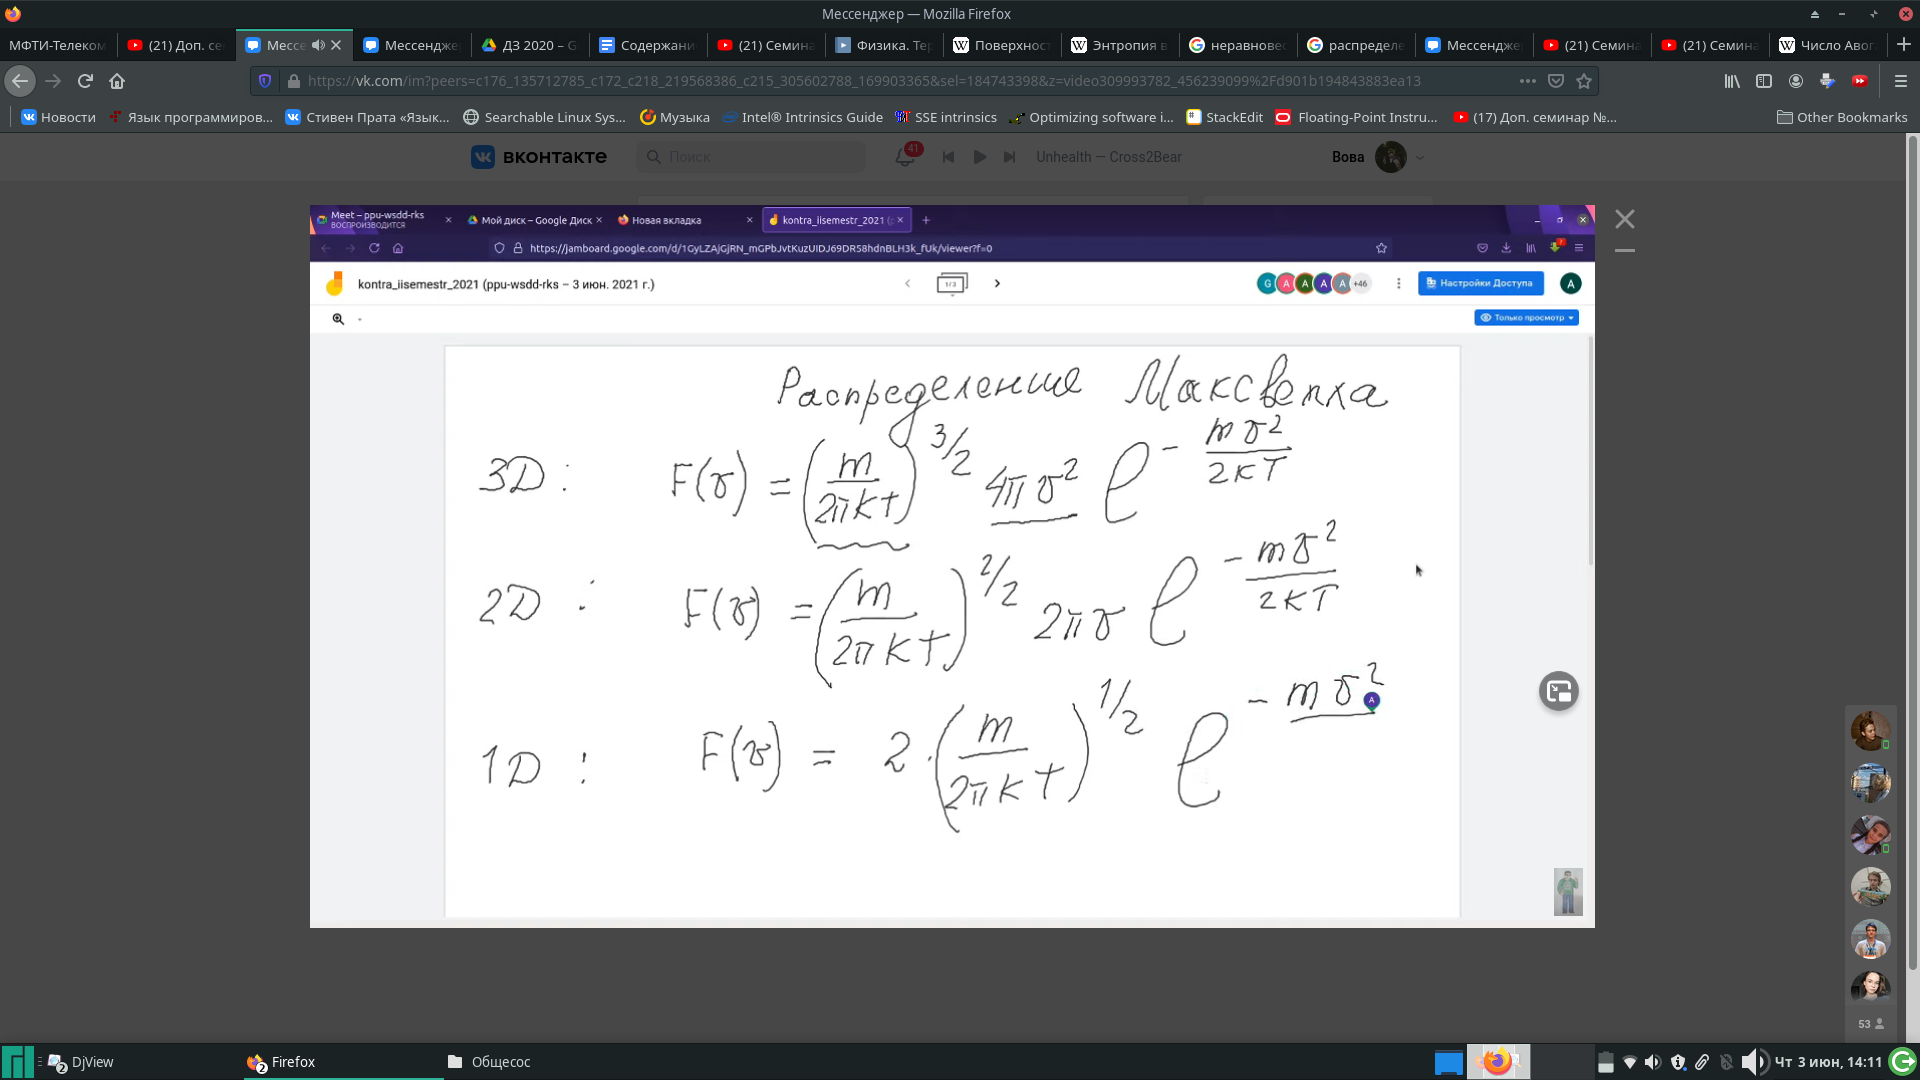 Мессенджер — Mozilla Firefox
МФТИ-Телеком
(21) Доп. се
Мессе
Мессендже
ДЗ 2020 – G
Содержани
(21) Семина
Физика. Те
Поверхнос
Энтропия в
неравновес
распределе
Мессендже
(21) Семина
(21) Семина
Число Авог
https://vk.com/im?peers=c176_135712785_c172_c218_219568386_c215_305602788_169903365&sel=184743398&z=video309993782_456239099%2Fd901b194843883ea13
Новости
Язык программиров...
Стивен Прата «Язык...
Searchable Linux Sys...
Музыка
Intel® Intrinsics Guide
SSE intrinsics
Optimizing software i...
StackEdit
Floating-Point Instru...
(17) Доп. семинар №...
Other Bookmarks
вконтакте
Поиск
41
Unhealth — Cross2Bear
Вова
Meet – ppu-wsdd-rks
ВОСПРОИЗВОДИТСЯ
Мой диск – Google Диск
Новая вкладка
kontra_iisemestr_2021 (
https://jamboard.google.com/d/1GyLZAjGjRN_mGPbJvtKuzUIDJ69DR58hdnBLH3k_fUk/viewer?f=0
kontra_iisemestr_2021 (ppu-wsdd-rks – 3 июн. 2021 г.)
1/3
G A A A A +46
Настройки Доступа
A
Только просмотр
Распределение Максвелла
3D : F(v) = (m/2πkT)^3/2 4πv² e^-mv²/2kT
2D : F(v) = (m/2πkT)^2/2 2πv e^-mv²/2kT
1D : F(v) = 2·(m/2πkT)^1/2 e^-mv²
A
53
DjView
2
Firefox
2
Общесос
Чт 3 июн, 14:11